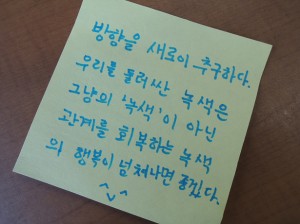 방향을 새로이 추구하다.
우리를 둘러싼 녹색은
그냥의 '녹색'이 아닌
관계를 회복하는 녹색
의 행복이 넘쳐나면 좋겠다.
^v^